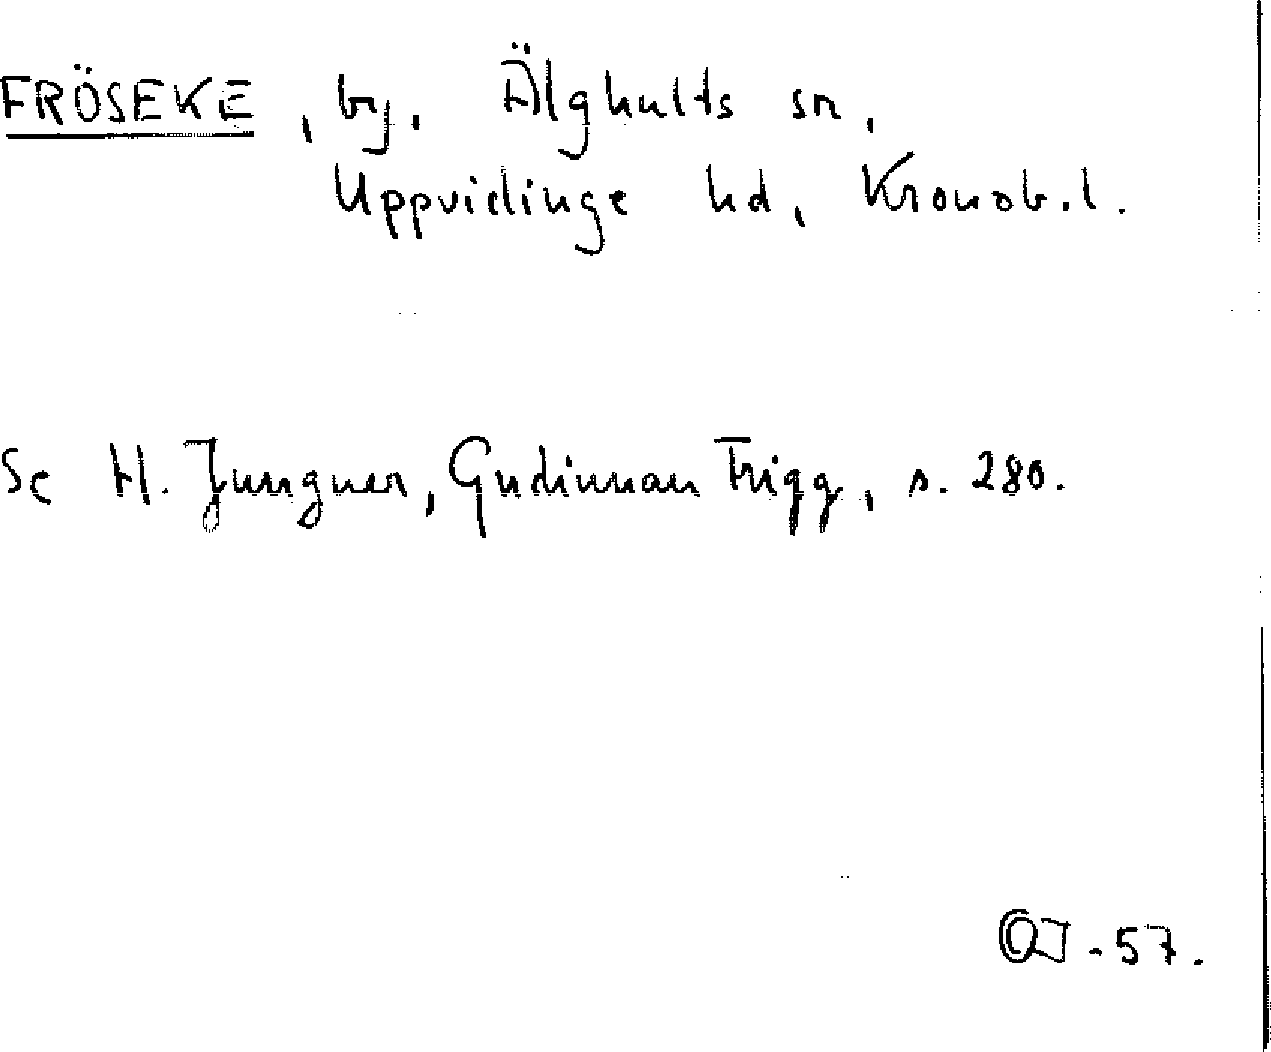 FRÖSEKE, by, Älghults sn,
Uppvidinge hd, Kronob.l.
Se H. Jungner, Gudinnan Frigg, s. 280.
OJ-57.